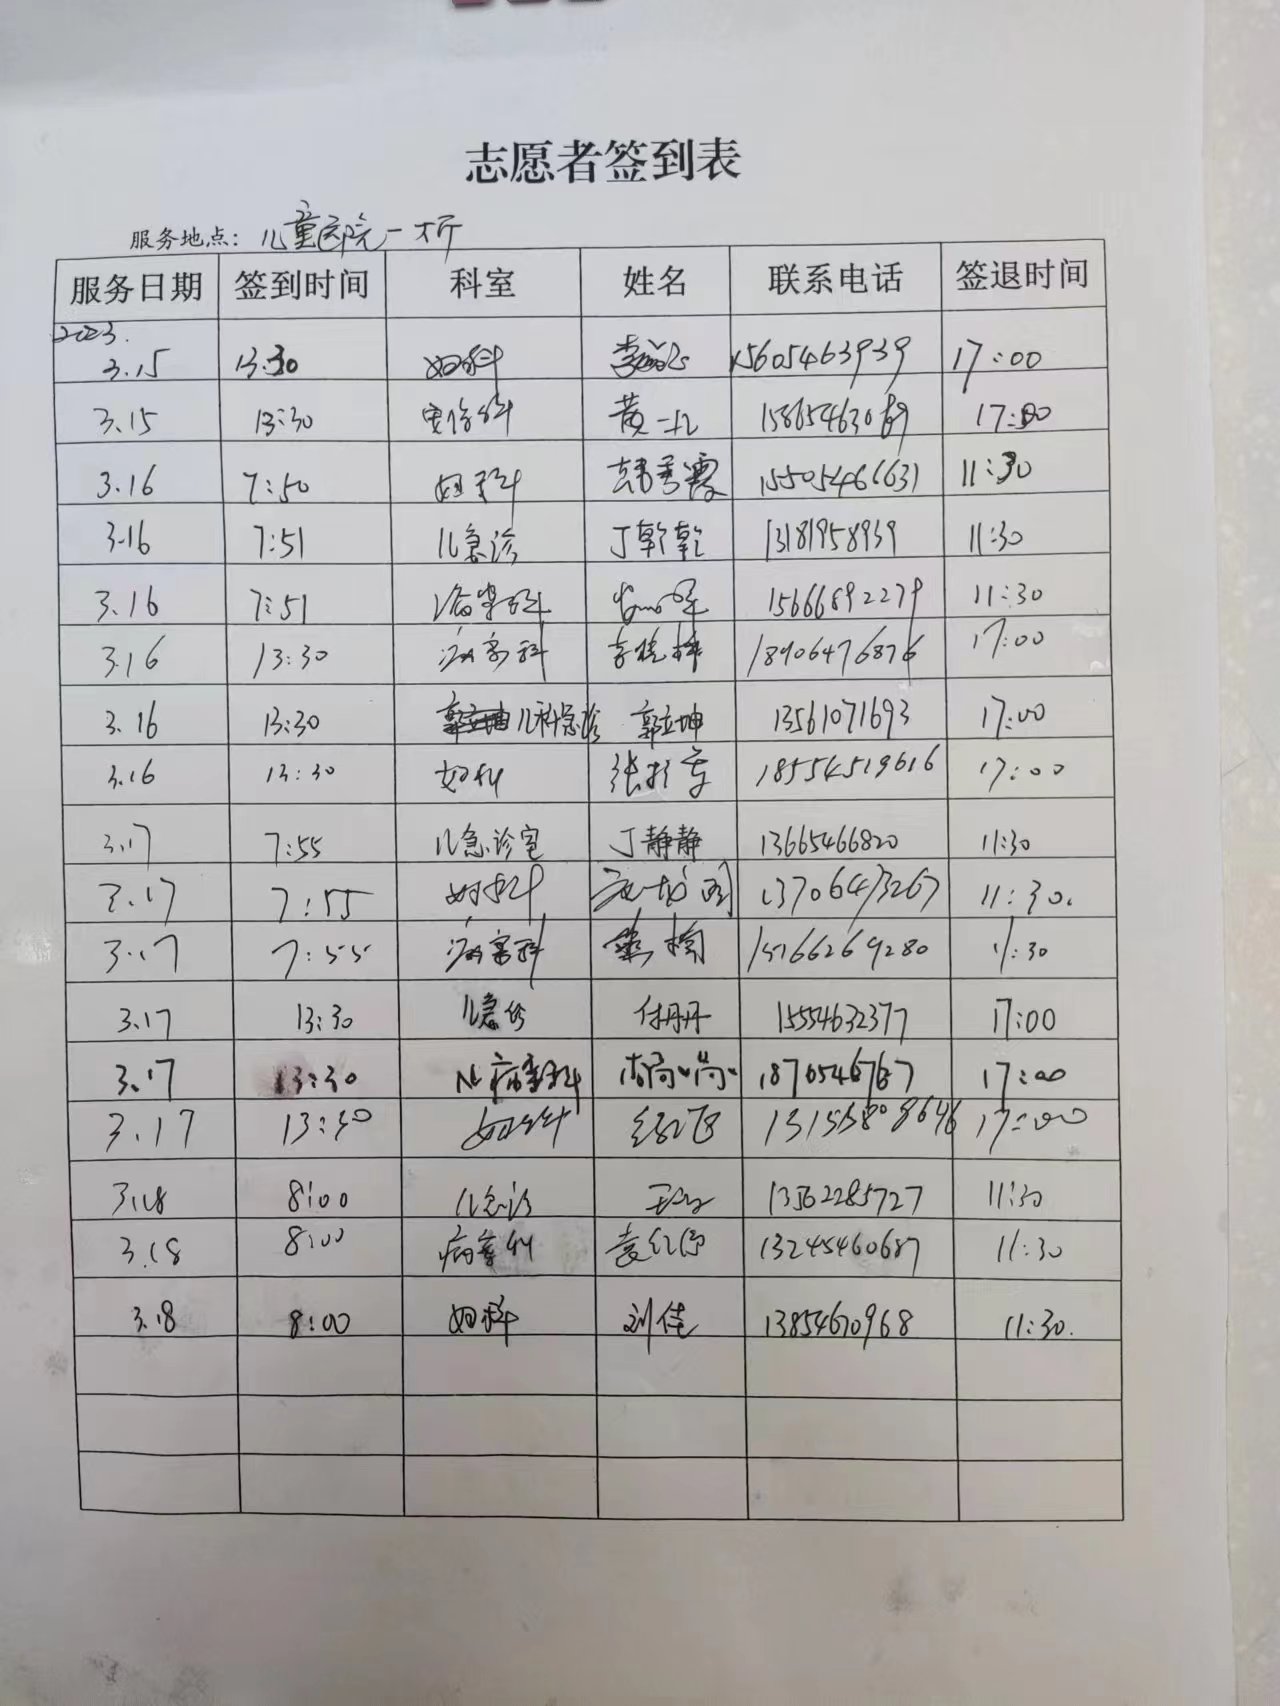 志愿者签到表
服务地点：儿童医院一大厅
服务日期 签到时间 科室 姓名 联系电话 签退时间
2023.
3.15 13:30 妇科 15605463939 17:00
3.15 13:30 黄一凡 17:00
3.16 7:50 妇科 韩秀霞 15505466631 11:30
3.16 7:51 儿急诊 丁乾乾 13181958939 11:30
3.16 7:51 15666892279 11:30
3.16 13:30 病案科 18906476876 17:00
3.16 13:30 儿科急诊 郭立坤 13561071693 17:00
3.16 13:30 妇科 18554519616 17:00
3.17 7:55 儿急诊室 丁静静 13665466820 11:30
3.17 7:55 妇科 13706473267 11:30.
3.17 7:55 病案科 15166269280 11:30
3.17 13:30 儿急诊 付丹丹 15554632377 17:00
3.17 13:30 病案科 17:00
3.17 13:30 妇科 17:00
3.18 8:00 儿急诊 13562285727 11:30
3.18 8:00 病案科 13245460687 11:30
3.18 8:00 妇科 刘佳 13854670968 11:30.